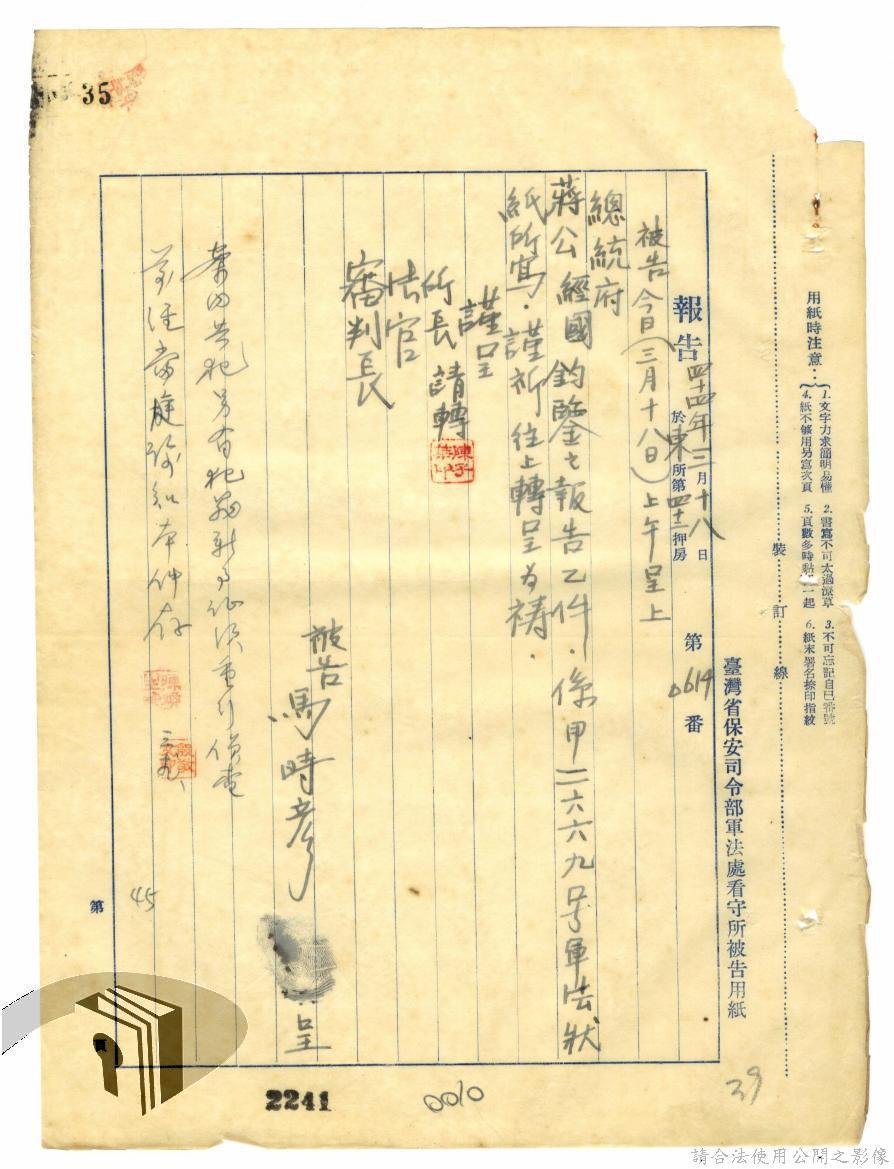 35
用紙時注意：
1. 文字力求簡明易懂
2. 書寫不可太過潦草
3. 不可忘記自己番號
4. 紙不夠用另寫次頁
5. 頁數多時黏一起
6. 紙末署名捺印指紋
裝訂線
臺灣省保安司令部軍法處看守所被告用紙
報告 四十四年三月十八日 於東所第四十二押房 第0614番
被告今日(三月十八日)上午呈上
總統府
蔣公經國鈞鑒之報告乙件．係甲二六六九号軍法狀
紙所寫．謹祈往上轉呈為禱．
謹呈
所長請轉
法官
審判長
被告 馬時彥 呈
前經當庭諭知本件存
第
頁
45
2241
0010
39
請合法使用公開之影像